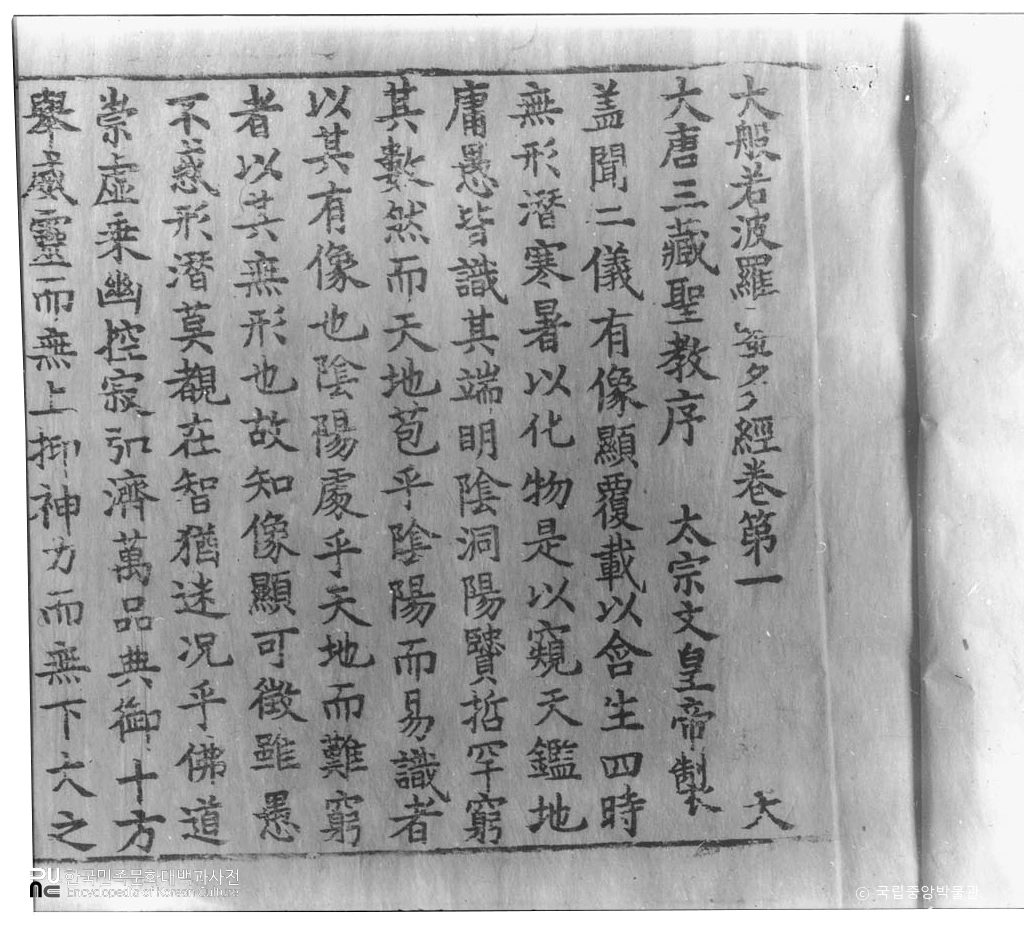 大般若波羅蜜多經卷第一 天
大唐三藏聖教序 太宗文皇帝製
盖聞二儀有像顯覆載以含生四時
無形潛寒暑以化物是以窺天鑑地
庸愚皆識其端明陰洞陽賢哲罕窮
其數然而天地苞乎陰陽而易識者
以其有像也陰陽處乎天地而難窮
者以其無形也故知像顯可徵雖愚
不惑形潛莫覩在智猶迷况乎佛道
崇虛乘幽控寂弘濟萬品典御十方
舉威靈而無上抑神力而無下大之
한국민족문화대백과사전
Encyclopedia of Korean Culture
© 국립중앙박물관